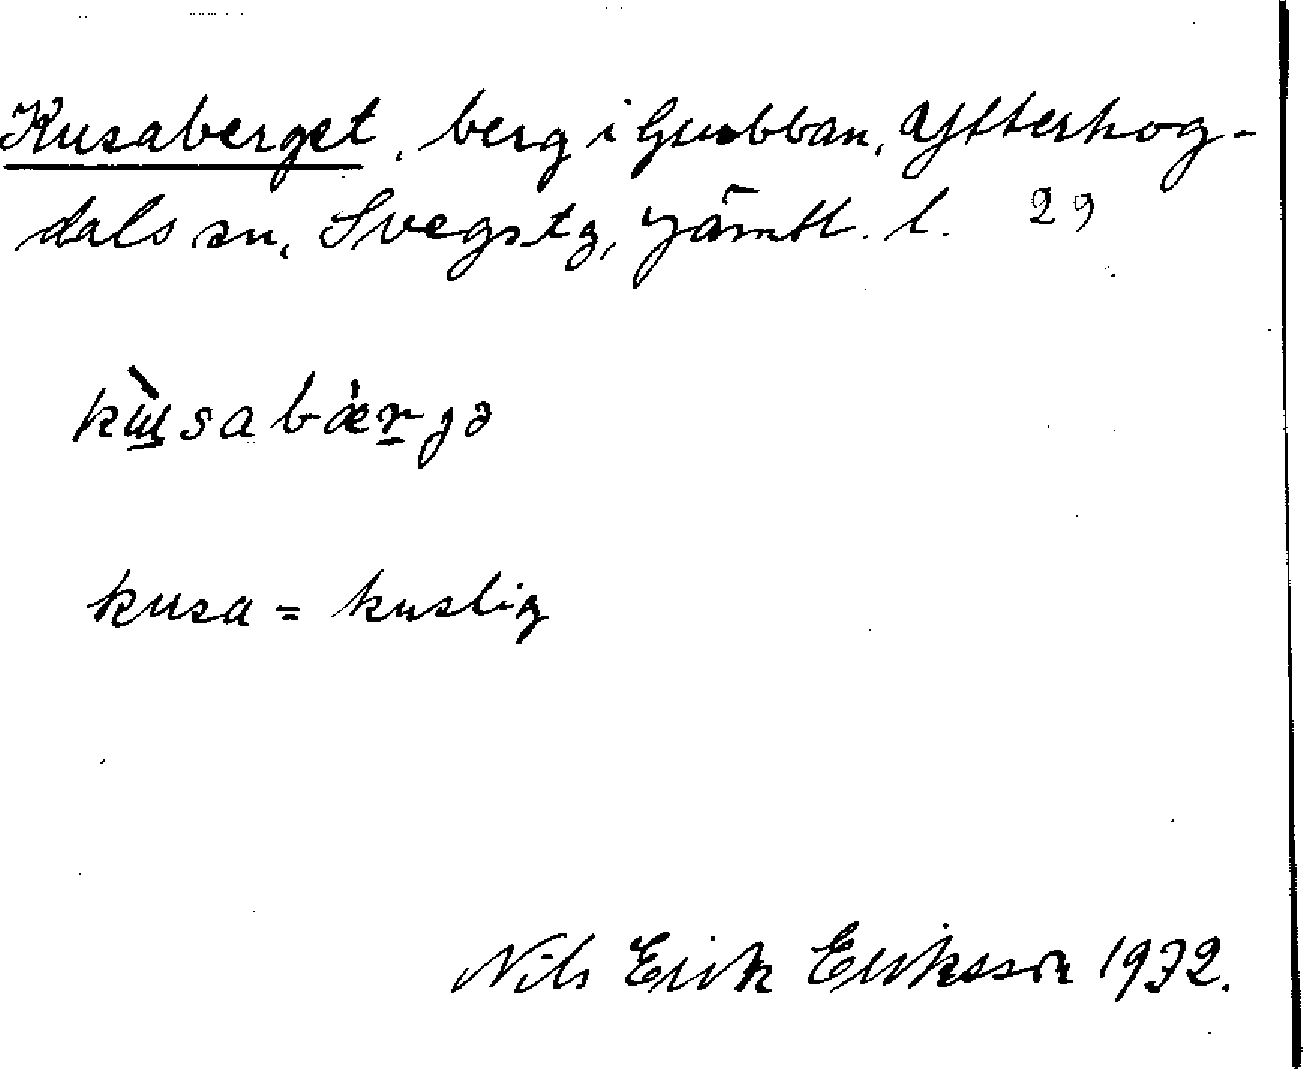 Kusaberget, berg i Grubban, Ytterhog-
dals sn, Svegs tg, Jämtl. l. 29
kùsabærjə
kusa = kuslig
Nils Erik Eriksson 1932.